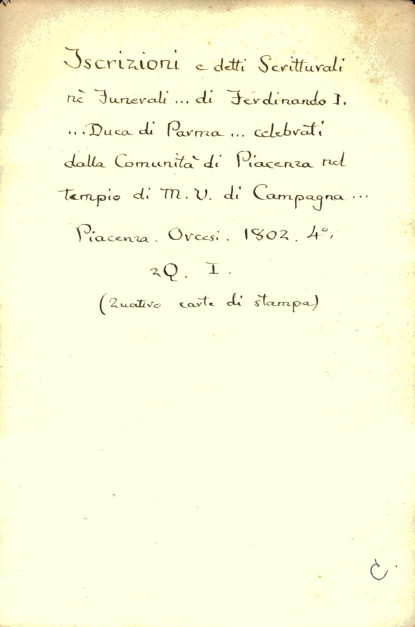 Iscrizioni e detti Scritturali
nè Funerali ... di Ferdinando I.
... Duca di Parma ... celebrati
dalla Comunità di Piacenza nel
tempio di M. V. di Campagna ...
Piacenza. Orcesi. 1802. 4°.
2Q. I.
(Quattro carte di stampa)
C.